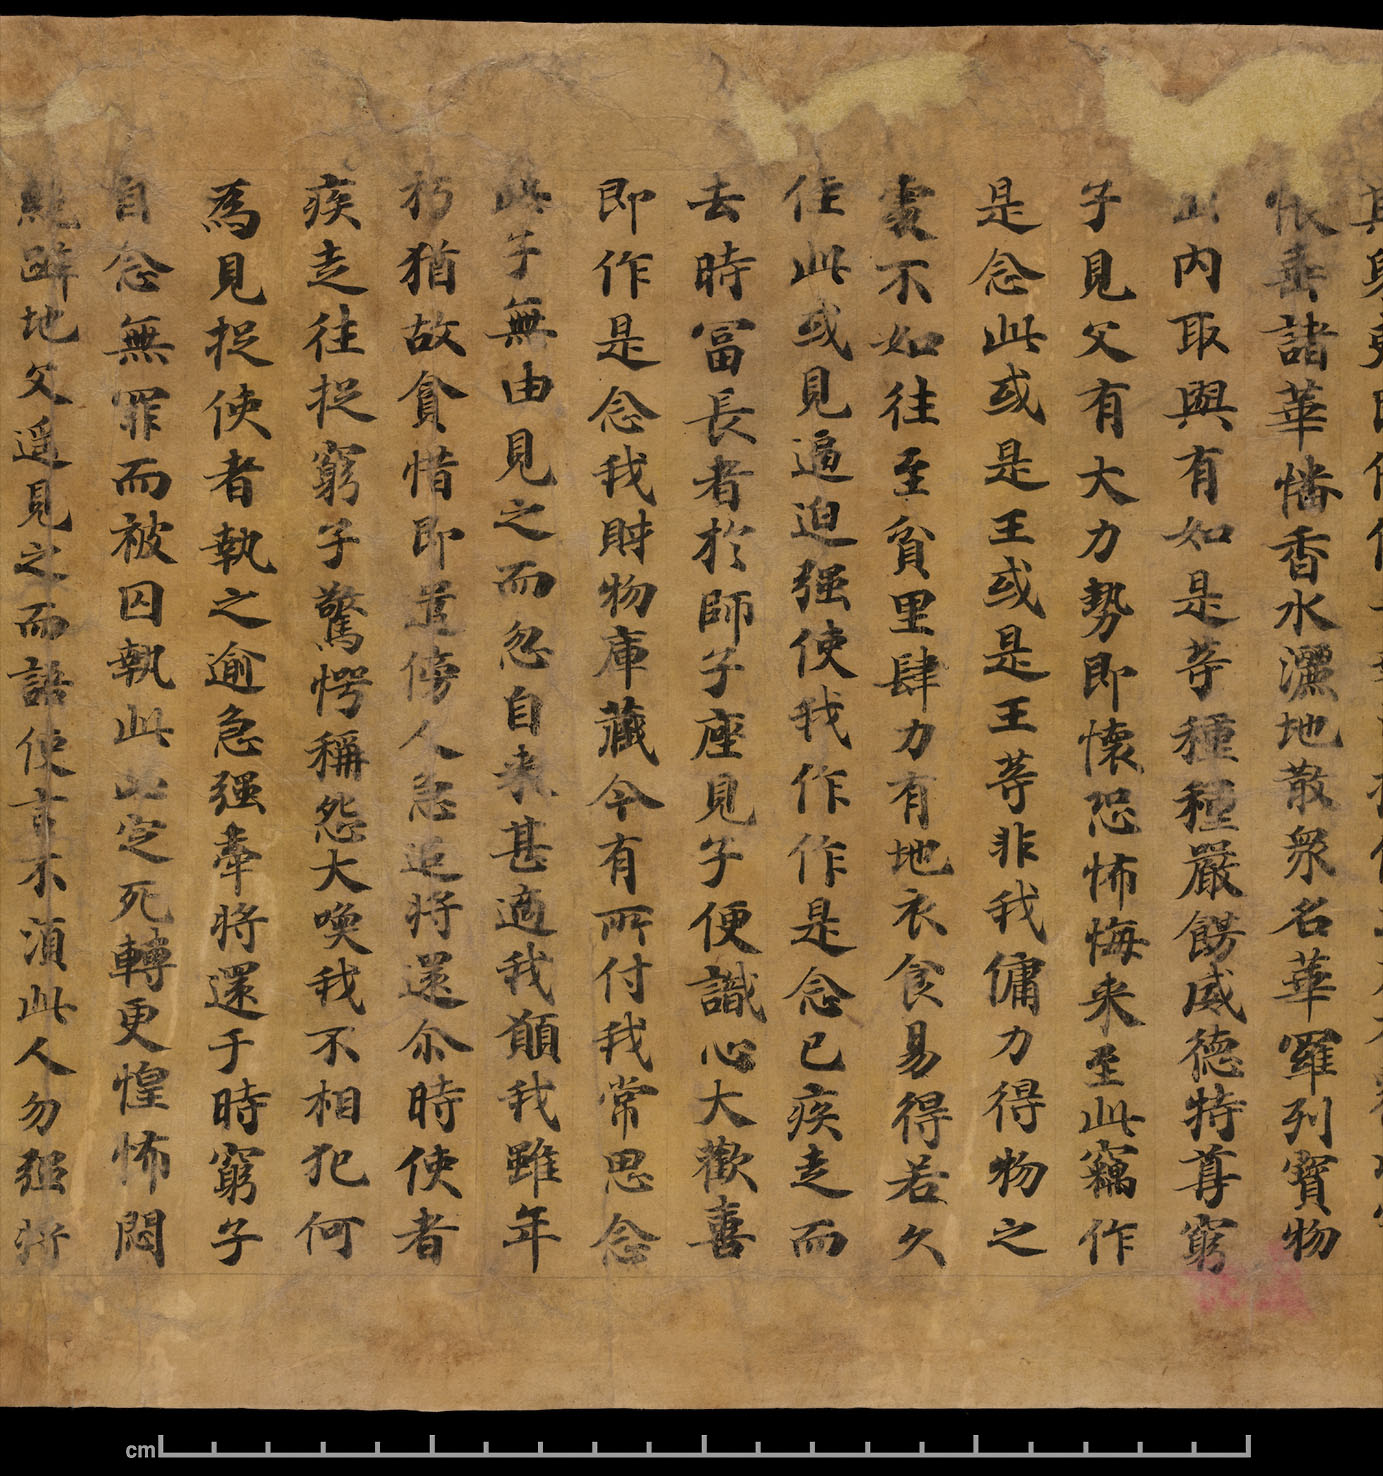 帳垂諸華幡香水灑地散衆名華羅列寳物
出内取與有如是等種種嚴餝威德特尊窮
子見父有大力勢即懷恐怖悔来至此竊作
是念此或是王或是王等非我傭力得物之
處不如往至貧里肆力有地衣食易得若久
住此或見逼迫强使我作作是念已疾走而
去時冨長者於師子座見子便識心大歡喜
即作是念我財物庫藏今有所付我常思念
此子無由見之而忽自来甚適我願我雖年
朽猶故貪惜即遣傍人急追將還尒時使者
疾走往捉窮子驚愕稱怨大喚我不相犯何
為見捉使者執之逾急强牽將還于時窮子
自念無罪而被囚執此必定死轉更惶怖悶
絶躃地父遥見之而語使言不湏此人勿强將